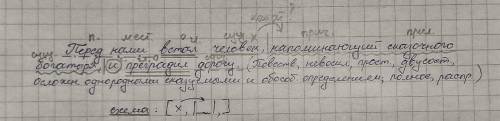 какой?
п. мест. гл. сущ. х прич. прил.
сущ. Перед нами встал человек, напоминающий сказочного
богатыря, и преградил дорогу. (Повеств, невоскл, прост, двусост,
ослож. однородными сказуемыми и обособ. определением, полное, распр.)
схема: [х, |~|, ]